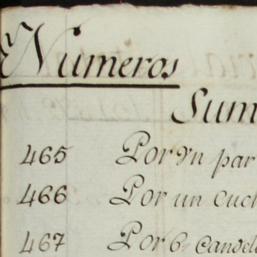 Numeros
Sum
465 Por Vn par
466 Por un cuch
467 Por 6 candel